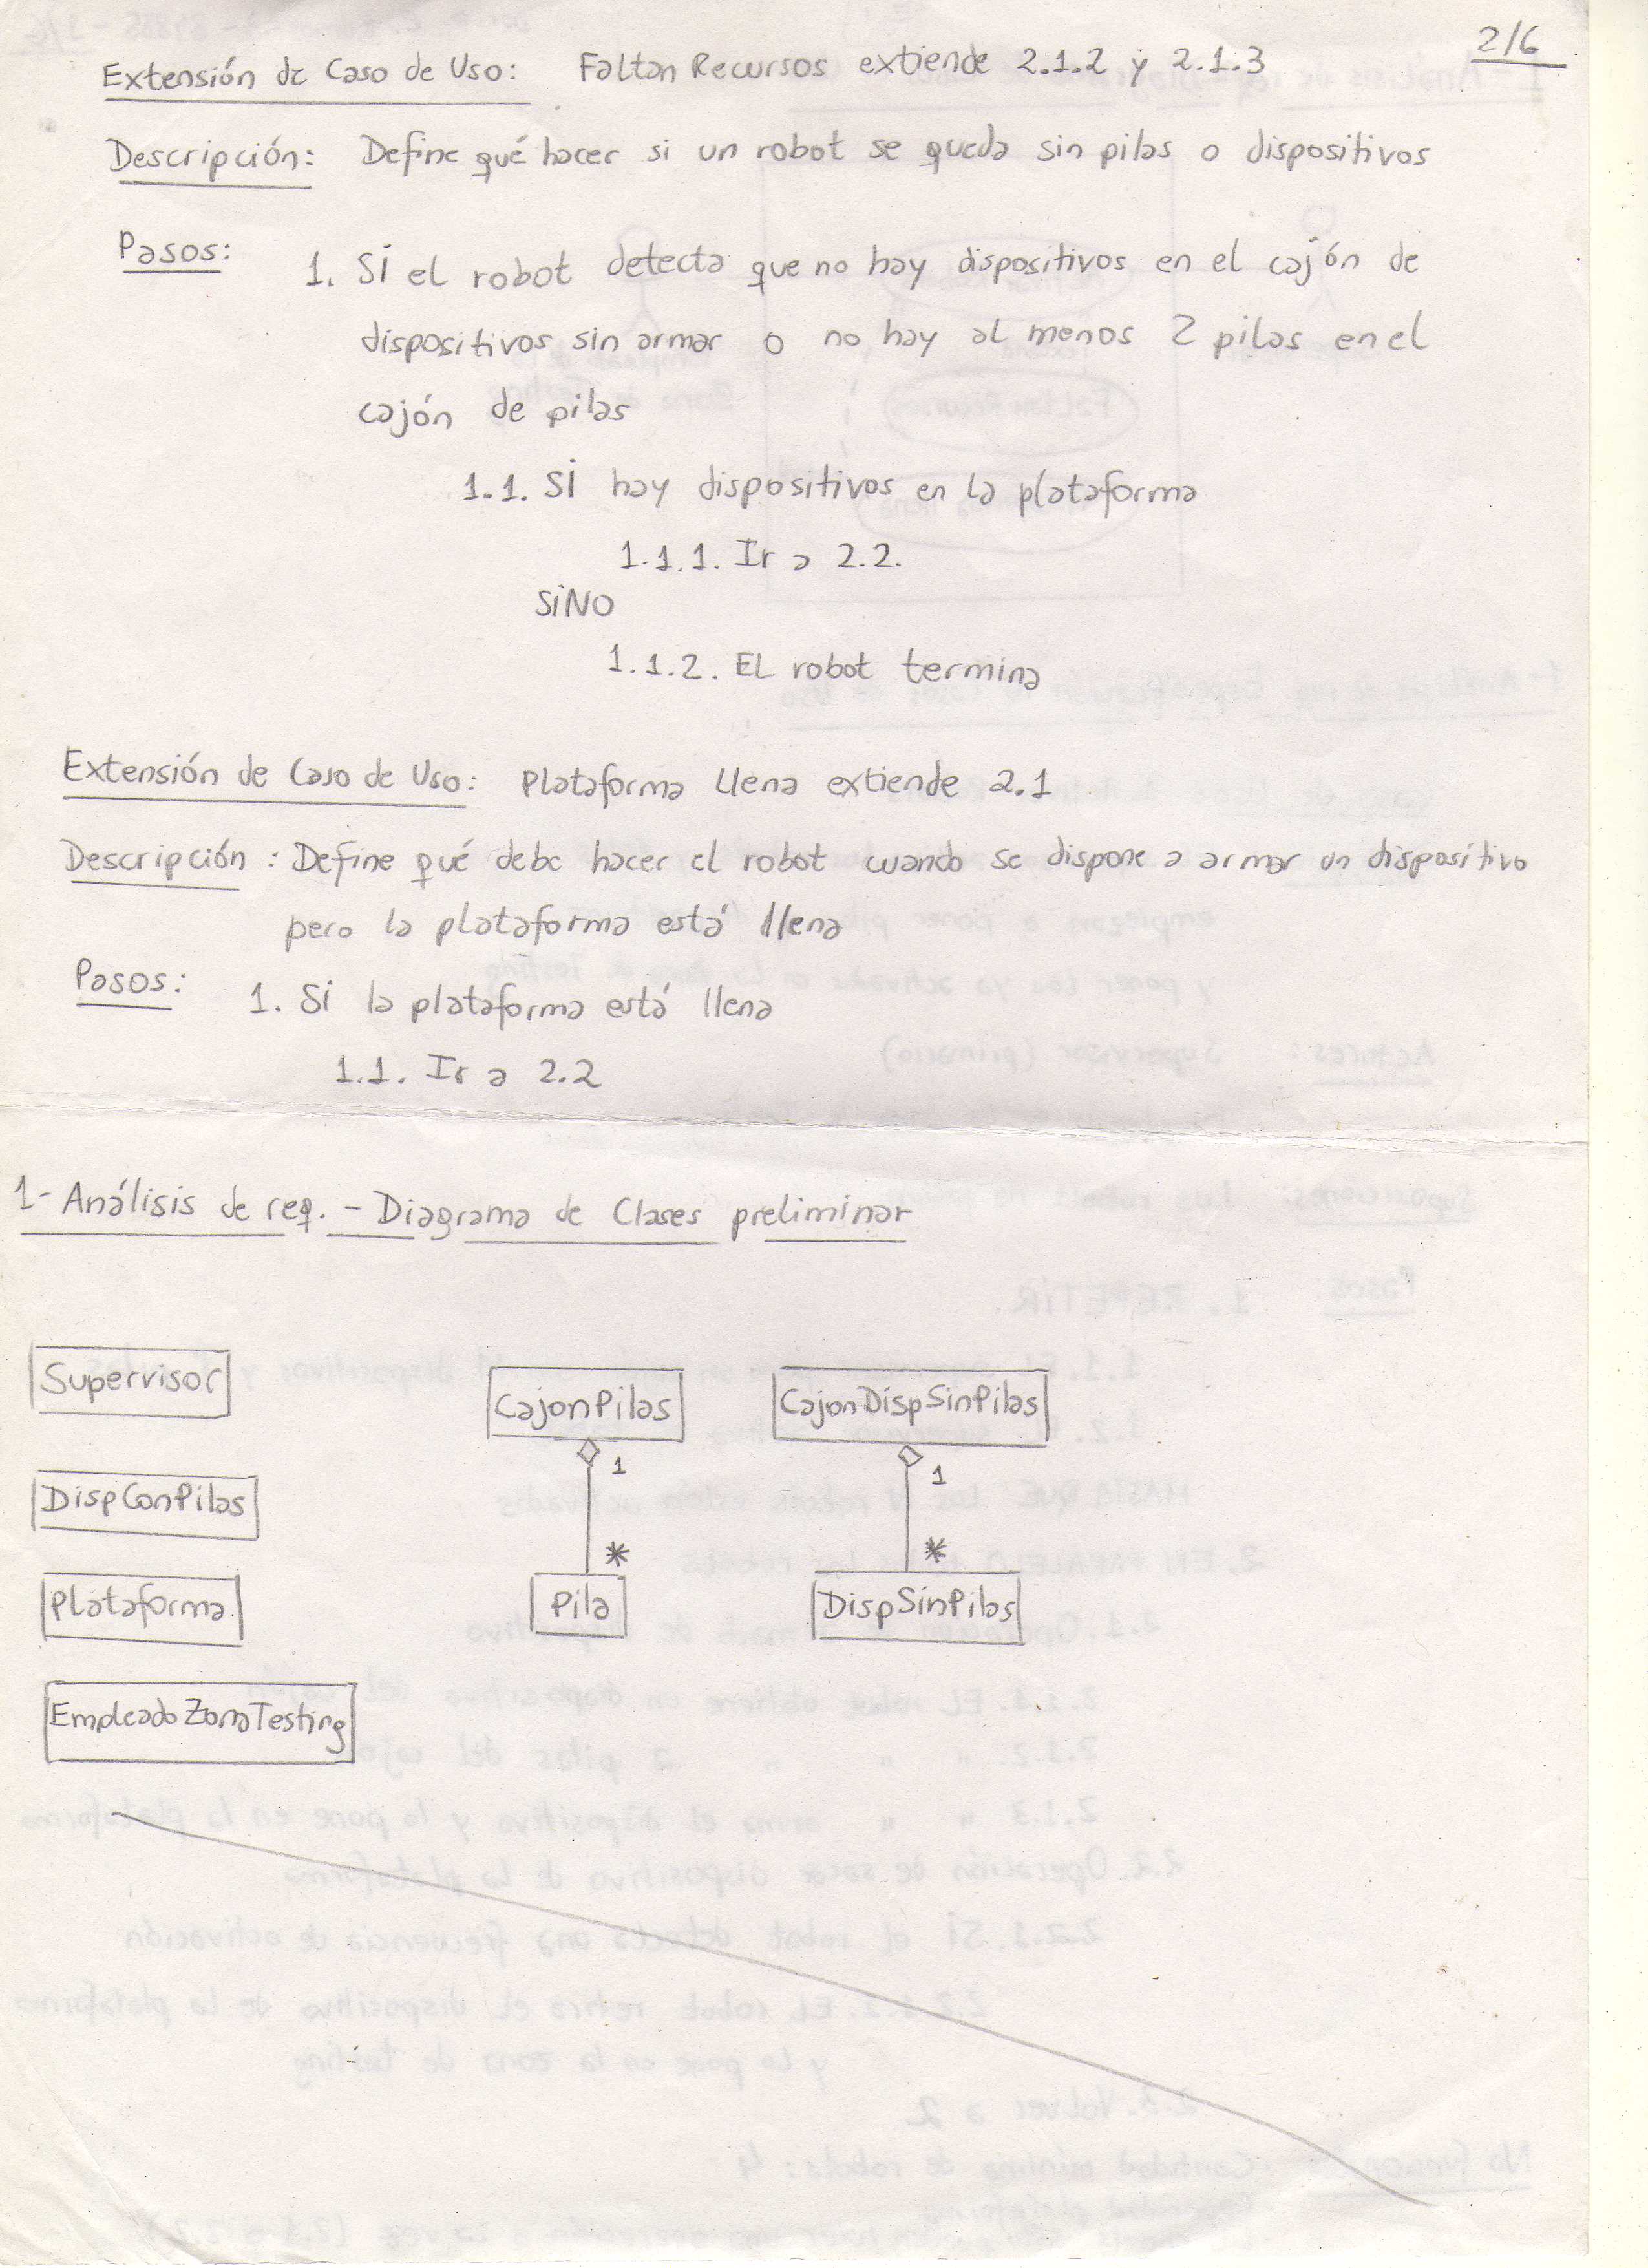 2/6
Extensión de Caso de Uso: Faltan Recursos extiende 2.1.2 y 2.1.3
Descripción: Define qué hacer si un robot se queda sin pilas o dispositivos
Pasos:
1. Si el robot detecta que no hay dispositivos en el cajón de
dispositivos sin armar o no hay al menos 2 pilas en el
cajón de pilas
1.1. Si hay dispositivos en la plataforma
1.1.1. Ir a 2.2.
SiNO
1.1.2. EL robot termina
Extensión de Caso de Uso: Plataforma llena extiende 2.1
Descripción: Define qué debe hacer el robot cuando se dispone a armar un dispositivo
pero la plataforma está llena
Pasos: 1. Si la plataforma está llena
1.1. Ir a 2.2
1- Análisis de req. - Diagrama de Clases preliminar
Supervisor
CajonPilas
CajonDispSinPilas
1
1
DispConPilas
*
*
Plataforma
Pila
DispSinPilas
EmpleadoZonaTesting